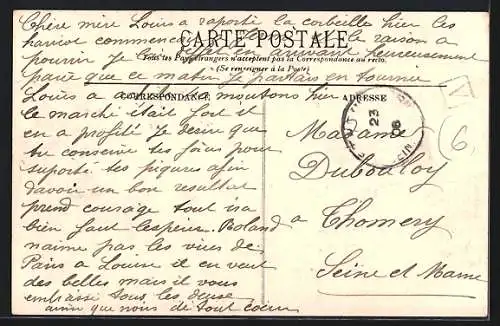 Chère mère Louis a raporté la corbeille hier les
haricot commencai la raison a
CARTE POSTALE
pourrir je les en arrivant heureusement
Tous les Pays étrangers n'acceptent pas la Correspondance au recto.
(Se renseigner à la Poste)
parce que ce matin je partais en tournée
Louis a acheté moutons hier
CORRESPONDANCE
ADRESSE
le marché était fort il
en a profité je desire que
tu conserve tes forces pour
suporté tes piqures afin
davoir un bon resultat
prend courage tout ira
bien faut lesperer. Roland
naime pas les vues de
Paris a Louise il en veut
des belles mais il vous
embrasse tous les deuse
ainsi que nous de tout coeur
Madame
Dubouloy
a Thomery
Seine et Marne
23
6